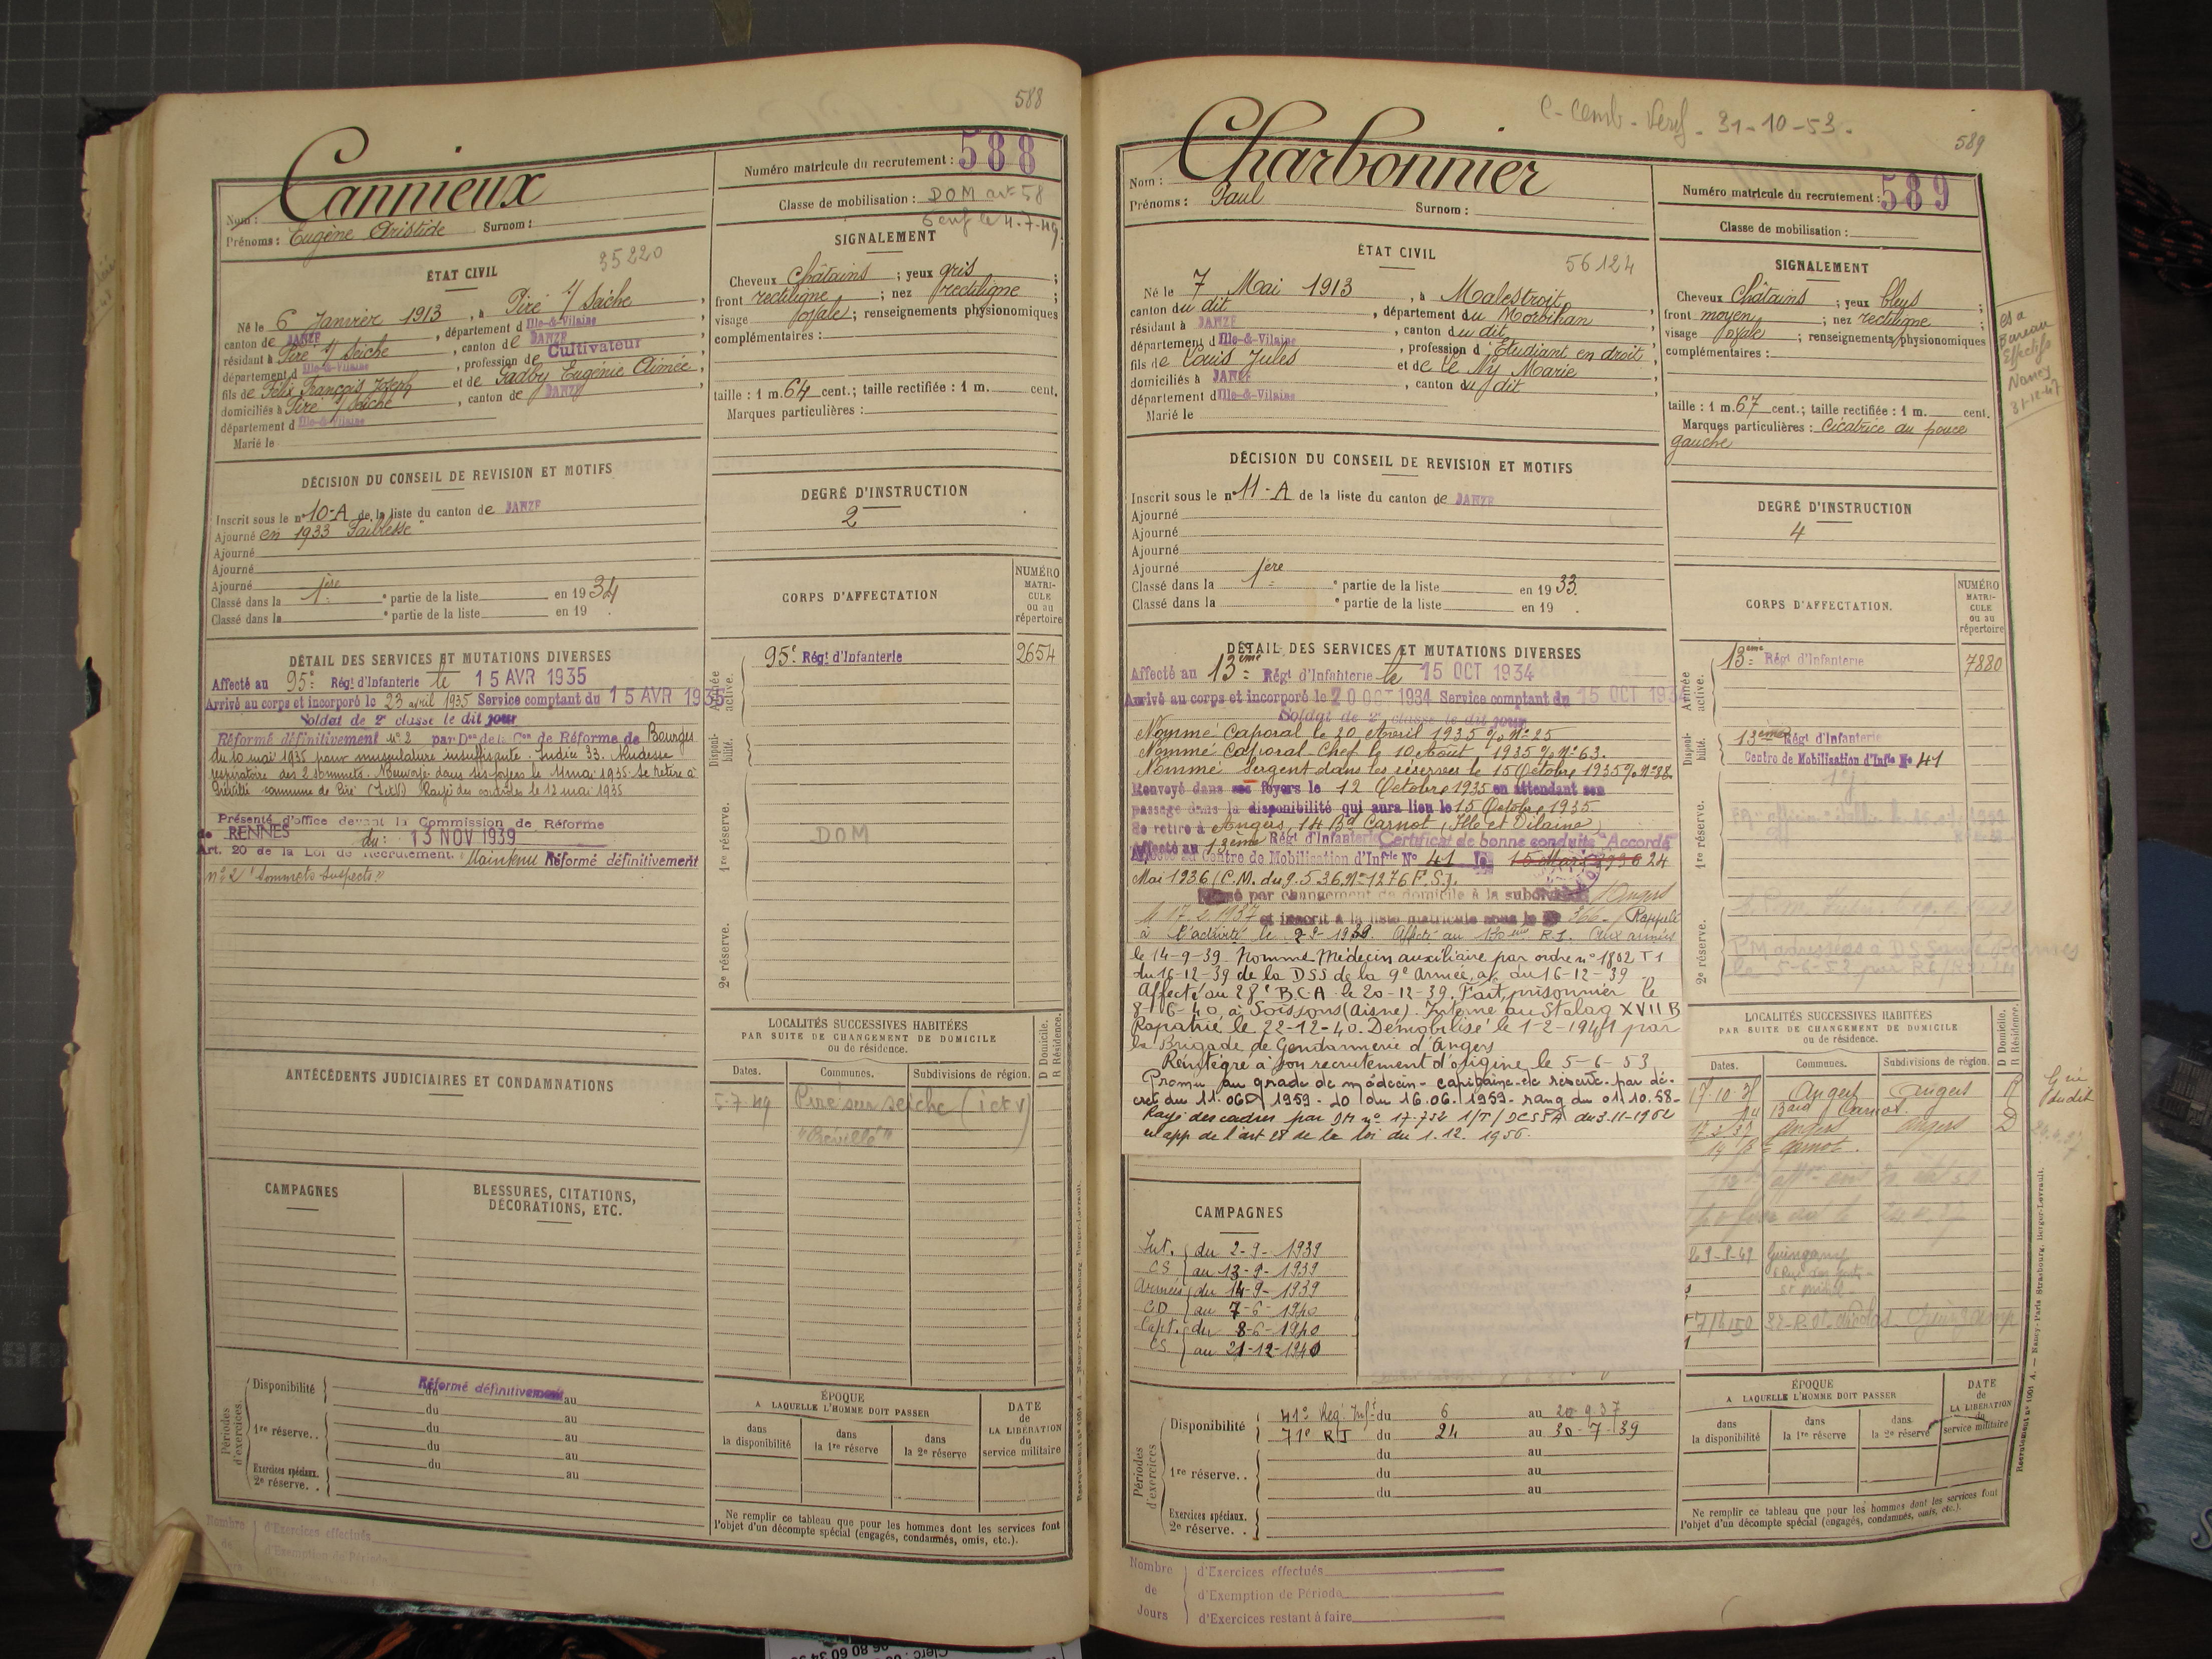 588
Nom : Cannieux
Prénoms : Eugène Aristide Surnom :
Numéro matricule du recrutement : 588
Classe de mobilisation : DOM art 58
6 enf le 4.7.49
ÉTAT CIVIL
35220
Né le 6 Janvier 1913, à Piré s/ Seiche,
canton de JANZÉ, département d Ille-&-Vilaine,
résidant à Piré s/ Seiche, canton de JANZÉ,
département d Ille-&-Vilaine, profession de Cultivateur
fils de Félix François Joseph et de Gadby Eugénie Aimée,
domiciliés à Piré s/ Seiche, canton de JANZÉ,
département d Ille-&-Vilaine
Marié le
SIGNALEMENT
Cheveux Châtains ; yeux gris ;
front rectiligne ; nez rectiligne ;
visage ovale ; renseignements physionomiques
complémentaires :
taille : 1 m. 64 cent. ; taille rectifiée : 1 m. cent.
Marques particulières :
DÉCISION DU CONSEIL DE REVISION ET MOTIFS
Inscrit sous le n° 10-A de la liste du canton de JANZÉ
Ajourné en 1933 "Faiblesse"
Ajourné
Ajourné
Ajourné
Classé dans la 1ère partie de la liste en 1934
Classé dans la e partie de la liste en 19 .
DEGRÉ D'INSTRUCTION
2
DÉTAIL DES SERVICES ET MUTATIONS DIVERSES
Affecté au 95e Régt d'Infanterie le 15 AVR 1935
Arrivé au corps et incorporé le 23 avril 1935 Service comptant du 15 AVR 1935
Soldat de 2e classe le dit jour
Réformé définitivement n° 2 par Don de la Con de Réforme de Bourges
du 10 mai 1935 pour musculature insuffisante. Indice 33. Rudesse
respiratoire des 2 sommets. Renvoyé dans ses foyers le 11 mai 1935. Se retire à
Brévillé commune de Piré (I et V) Rayé des contrôles le 12 mai 1935
Présenté d'office devant la Commission de Réforme
de RENNES du : 13 NOV 1939
Art. 20 de la Loi de Recrutement. Maintenu Réformé définitivement
n° 2 "Sommets suspects"
CORPS D'AFFECTATION
NUMÉRO MATRICULE ou au répertoire
Armée active.
95e Régt d'Infanterie 2654
Disponibilité.
1re réserve.
DOM
2e réserve.
ANTÉCÉDENTS JUDICIAIRES ET CONDAMNATIONS
LOCALITÉS SUCCESSIVES HABITÉES
PAR SUITE DE CHANGEMENT DE DOMICILE
ou de résidence.
D Domicile.
R Résidence.
Dates. Communes. Subdivisions de région.
5-7-49 Piré sur seiche (I et V)
"Brévillé"
CAMPAGNES
BLESSURES, CITATIONS,
DÉCORATIONS, ETC.
Périodes d'exercices.
Disponibilité Réformé définitivement
du au
du au
1re réserve. . du au
du au
du au
Exercices spéciaux.
2e réserve. .
ÉPOQUE
A LAQUELLE L'HOMME DOIT PASSER
dans la disponibilité
dans la 1re réserve
dans la 2e réserve
DATE de LA LIBÉRATION du service militaire
Ne remplir ce tableau que pour les hommes dont les services font
l'objet d'un décompte spécial (engagés, condamnés, omis, etc.).
Nombre de Jours
d'Exercices effectués
d'Exemption de Période
C-Comb-Vérif - 31-10-53 -
589
Nom : Charbonnier
Prénoms : Paul Surnom :
Numéro matricule du recrutement : 589
Classe de mobilisation :
ÉTAT CIVIL
56124
Né le 7 Mai 1913, à Malestroit,
canton du dit, département du Morbihan,
résidant à JANZÉ, canton du dit,
département d Ille-&-Vilaine, profession d'Etudiant en droit,
fils de Louis Jules et de Le Ny Marie
domiciliés à JANZÉ, canton du dit,
département d Ille-&-Vilaine
Marié le
SIGNALEMENT
Cheveux Châtains ; yeux bleus ;
front moyen ; nez rectiligne ;
visage ovale ; renseignements physionomiques
complémentaires :
taille : 1 m. 67 cent. ; taille rectifiée : 1 m. cent.
Marques particulières : Cicatrice au pouce
gauche
Bureau
Effectifs
Nancy
31-12-47
DÉCISION DU CONSEIL DE REVISION ET MOTIFS
Inscrit sous le n° 11-A de la liste du canton de JANZÉ
Ajourné
Ajourné
Ajourné
Ajourné
Classé dans la 1ère partie de la liste en 1933.
Classé dans la e partie de la liste en 19 .
DEGRÉ D'INSTRUCTION
4
DÉTAIL DES SERVICES ET MUTATIONS DIVERSES
Affecté au 13ème Régt d'Infanterie le 15 OCT 1934
Arrivé au corps et incorporé le 20 OCT 1934 Service comptant du 15 OCT 1934
Soldat de 2e classe le dit jour
Nommé Caporal le 20 Avril 1935 % N° 25
Nommé Caporal Chef le 10 Août 1935 % N° 63.
Nommé Sergent dans les réserves le 15 Octobre 1935 % N° 88.
Renvoyé dans ses foyers le 12 Octobre 1935 en attendant son
passage dans la disponibilité qui aura lieu le 15 Octobre 1935
Se retire à Angers, 14 Bd Carnot (Ille et Vilaine)
Affecté au 13ème Régt d'Infanterie Certificat de bonne conduite "Accordé"
Affecté au Centre de Mobilisation d'Infrie N° 41 le 24
Mai 1936 (C.M. du 9.5.36. N° 1276 F.S.).
par changement de domicile à la subdivision d'Angers
le 17.2.1937 et inscrit à la liste matricule sous le N° 366 - Rappelé
à l'activité le 2-9-1939. Affecté au 130ème R.I. Aux armées
le 14-9-39. Nommé Médecin auxiliaire par ordre n° 1802 T1
du 16-12-39 de la DSS de la 9e Armée, ac du 16-12-39
Affecté au 28e B.C.A le 20-12-39. Fait prisonnier le
8-6-40, à Soissons (Aisne). Interné au Stalag XVII B
Rapatrié le 22-12-40. Démobilisé le 1-2-1941 par
la Brigade de Gendarmerie d'Angers
Réintégré à son recrutement d'origine le 5-6-53
Promu au grade de médecin-capitaine de réserve par dé-
cret du 11.06 1959. JO du 16.06.1959 - rang du 01.10.58 -
Rayé des cadres par DM n° 17.752 1/T/DCSSA du 3-11-1962
en app de l'art 28 de la loi du 1.12.1956.
CORPS D'AFFECTATION.
NUMÉRO MATRICULE ou au répertoire
Armée active.
13ème Régt d'Infanterie 7880
Disponibilité.
13ème Régt d'Infanterie
Centre de Mobilisation d'Infie N° 41
1re réserve.
2e réserve.
PM adressées à DS Santé Rennes
LOCALITÉS SUCCESSIVES HABITÉES
PAR SUITE DE CHANGEMENT DE DOMICILE
ou de résidence.
D Domicile.
R Résidence.
Dates. Communes. Subdivisions de région.
17-10-35 Angers Angers R
14 Bard Carnot.
17-2-37 Angers Angers D
14 Bd Carnot.
Guingamp
CAMPAGNES
Int. du 2-9-1939
CS au 13-9-1939
Armées du 14-9-1939
CD au 7-6-1940
Capt. du 8-6-1940
CS au 21-12-1940
Périodes d'exercices
Disponibilité 41e Rég. Infie du 6 au 20 9 37
71e RI du 24 au 30-7-39
du au
1re réserve. . du au
du au
Exercices spéciaux.
2e réserve. .
ÉPOQUE
A LAQUELLE L'HOMME DOIT PASSER
dans la disponibilité
dans la 1re réserve
dans la 2e réserve
DATE de LA LIBÉRATION du service militaire
Ne remplir ce tableau que pour les hommes dont les services font
l'objet d'un décompte spécial (engagés, condamnés, omis, etc.).
Nombre de Jours
d'Exercices effectués
d'Exemption de Période
d'Exercices restant à faire